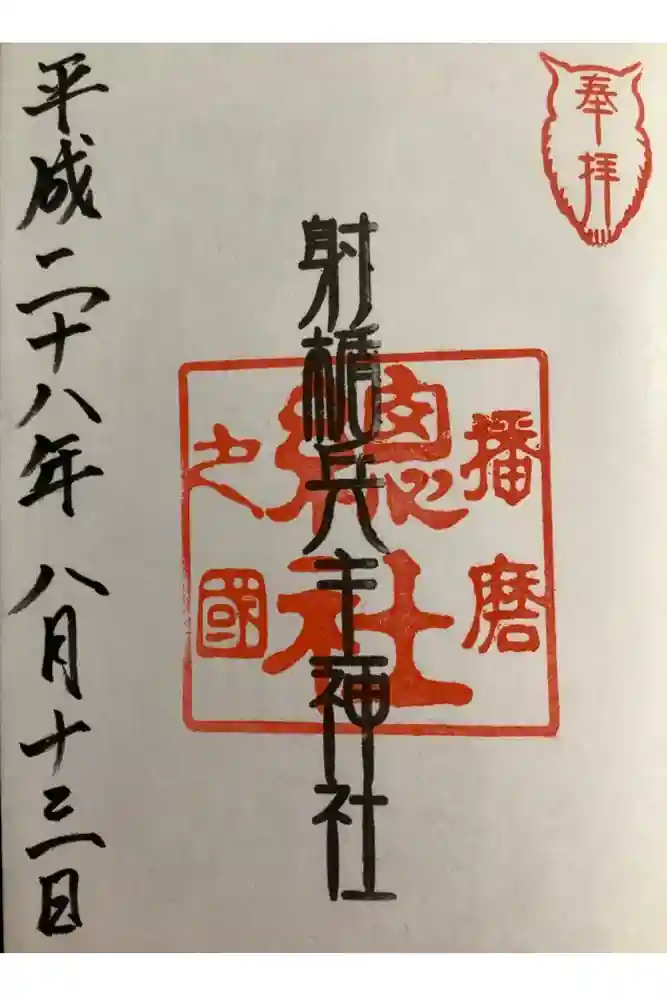 奉拝
播磨
總社
之國
射楯兵主神社
平成二十八年八月十三日